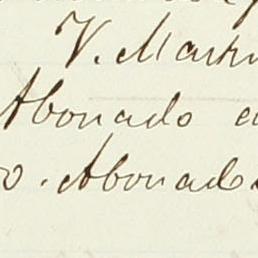 V. Mart
Abonado a
o. Abonado